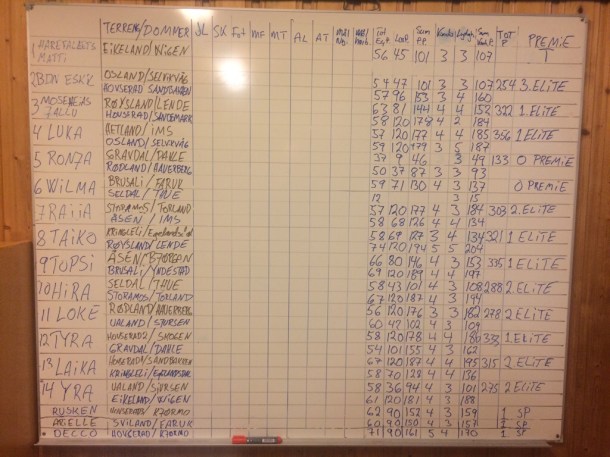 TERRENG/DOMMER JL SK Fot MF MT AL AT Sum P.P. TOT P PREMIE
1 EIKELAND/WIGEN 56 45 101 3 3 107 1
2 BDN ESKE OSLAND/SELVKVÅG
HOVSERAD SANDBAKKEN 54 47 101 3 3 107 254 3. ELITE
3 RØYSLAND/LENDE 57 96 153 3 4 160
HOVSERAD/SANDEMARK 63 81 144 4 4 152 322 1. ELITE
4 LUKA HETLAND/IMS 58 120 178 4 2 184
OSLAND/SELVKVÅG 57 120 177 4 4 185 356 1 ELITE
5 RONJA GRAVDAL/DAHLE 59 120 179 3 5 187
RØDLAND/HAUERBERG 37 9 46 3 49 133 0 PREMIE
6 WILMA BRUSALI/FARUK 50 37 87 3 3 93
SELDAL/TVUE 59 71 130 4 3 137 0 PREMIE
12 3 15
7 RAIIA STORAMOS/TORLAND 57 120 177 4 3 184 303 2. ELITE
ÅSEN/IMS 58 68 126 4 4 134
8 TAIKO KRINGLELI/ 58 69 127 3 4 134 321 1 ELITE
RØYSLAND/LENDE 74 120 194 5 5 204
9 TOPSI ÅSEN/BJØRGAN 66 80 146 4 3 153 335 1 ELITE
BRUSALI/YNDESTAD 69 120 189 4 4 197
10 HIRA SELDAL/TVUE 58 43 101 4 3 108 288 2. ELITE
STORAMOS/TORLAND 67 120 187 4 3 194
11 LOKE RØDLAND/HAUERBERG 56 120 176 3 3 182 278 2 ELITE
UALAND/SIURSEN 60 42 102 4 3 109
12 TYRA HOUSERAD2/SKOGEN 58 120 178 4 4 186 333 1. ELITE
GRAVDAL/DAHLE 54 101 155 4 3 162
13 LAIKA HOUSERAD/SANDBAKKEN 67 120 187 4 4 195 315 2. ELITE
KRINGLELI/EGELANDSDAL 58 70 128 4 4 136
14 YRA UALAND/SIURSEN 58 36 94 4 3 101 275 2 ELITE
EIKELAND/WIGEN 61 120 181 4 3 188
RUSKEN HOUSERAD/BJØRMO 62 90 152 4 3 159 1 SP
ARIELLE SVILAND/FARUK 60 90 150 4 3 157 1 SP
DECCO HOUSERAD/BJØRMO 71 90 161 5 4 170 1 SP